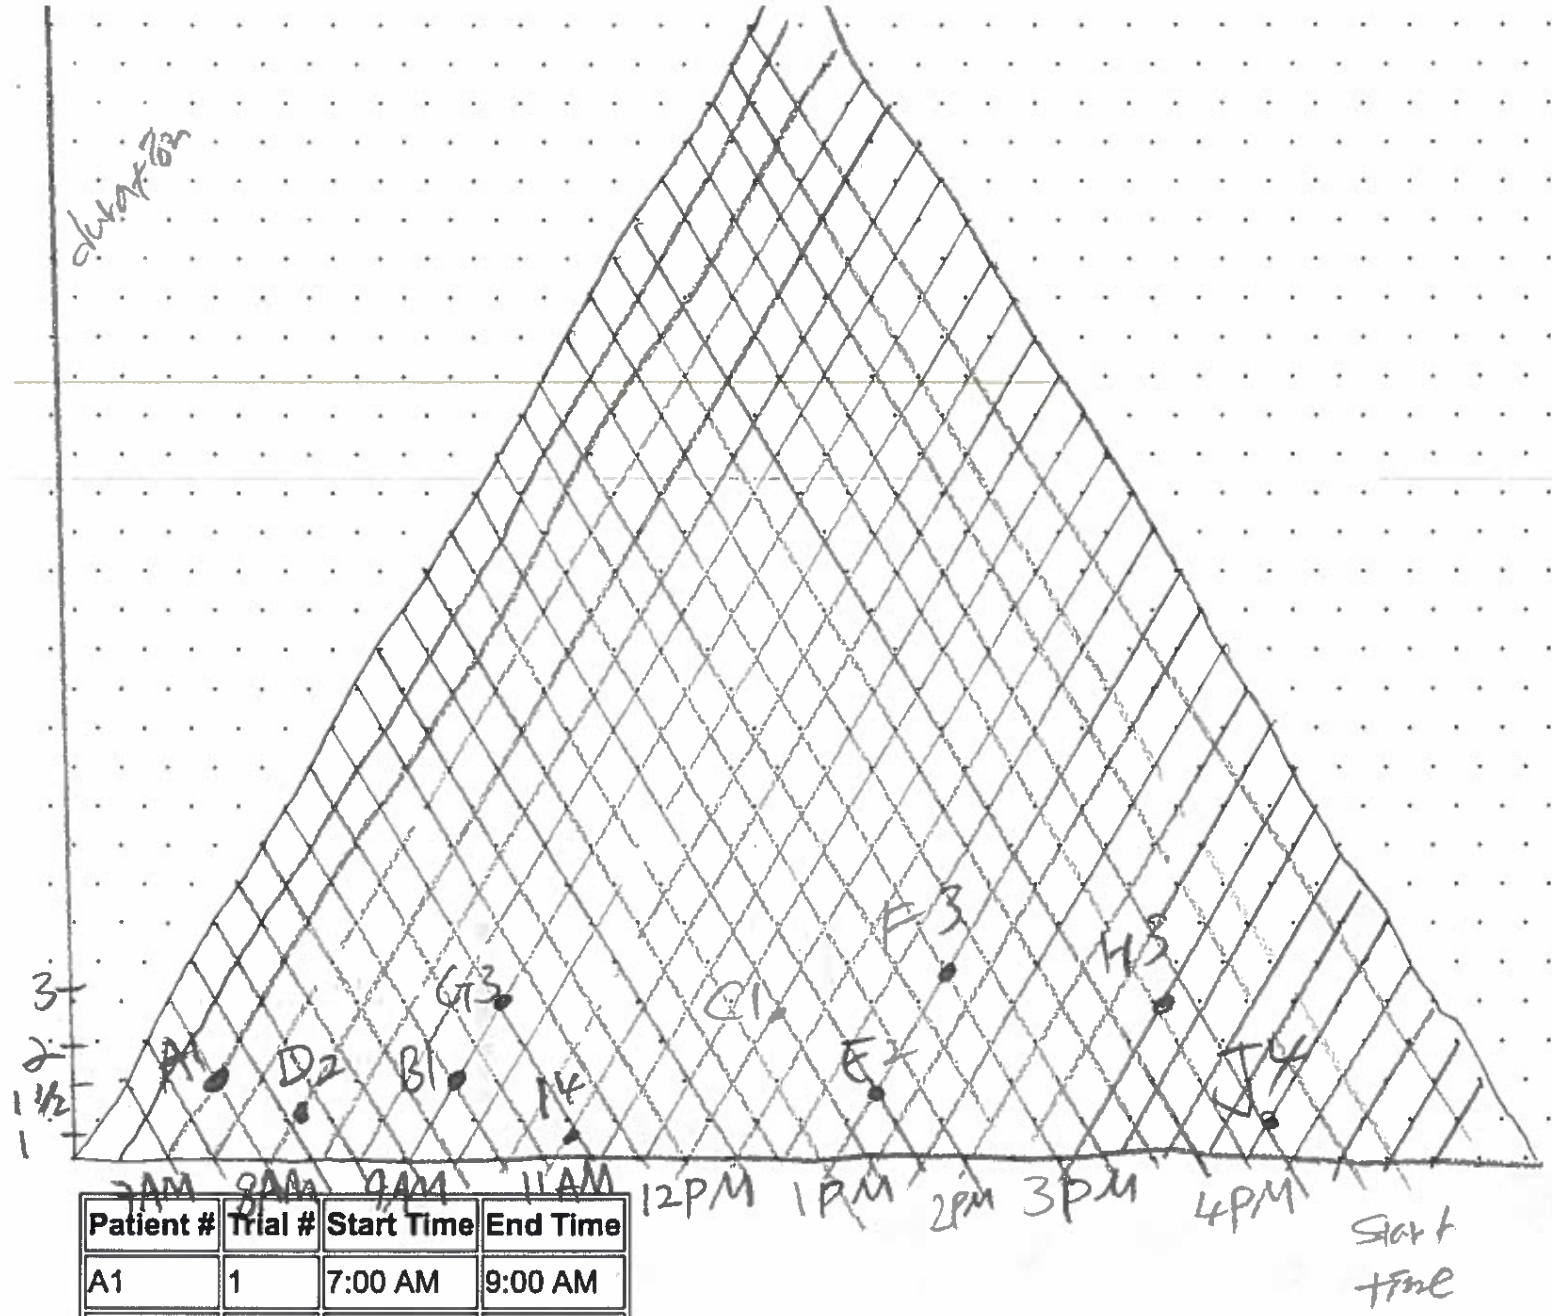 duration
F3
H3
3
G3
C1
2
A1
D2
B1
E2
J4
1 1/2
I4
1
7AM 8AM 9AM 11AM 12PM 1PM 2PM 3PM 4PM
Start
time
Patient # Trial # Start Time End Time
A1 1 7:00 AM 9:00 AM